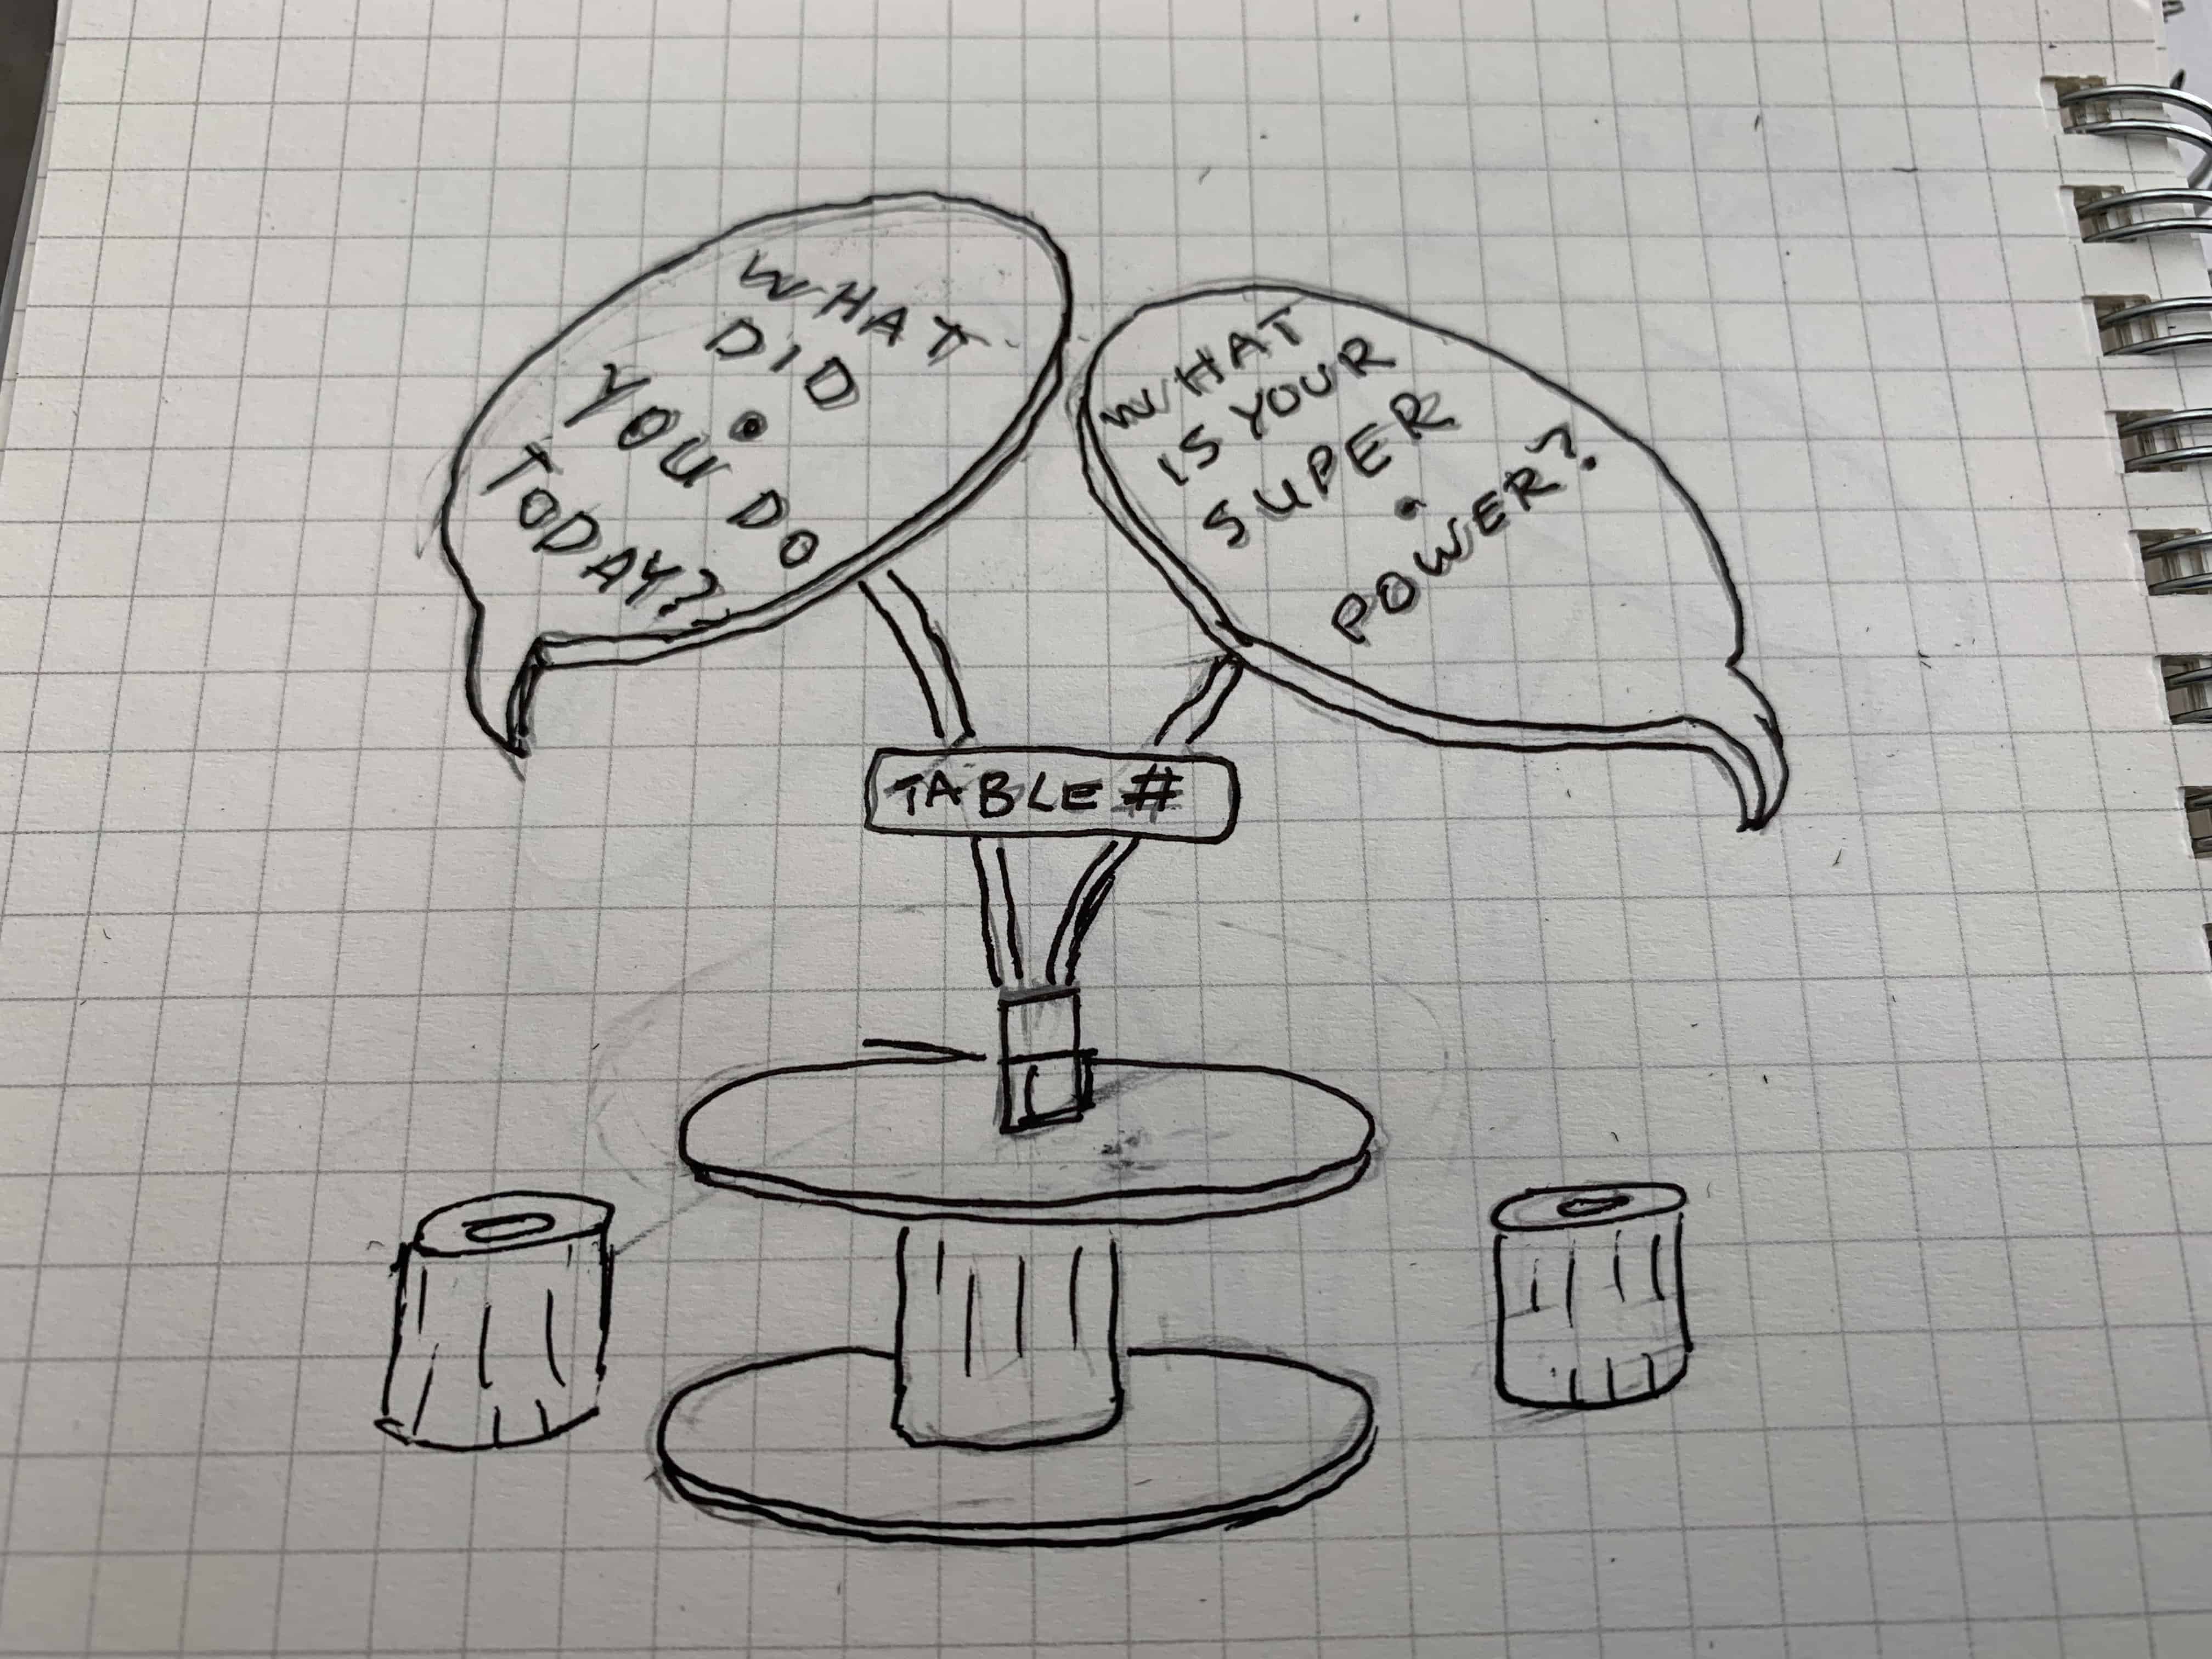 WHAT
DID
YOU DO
TODAY?
WHAT
IS YOUR
SUPER
POWER?
TABLE #